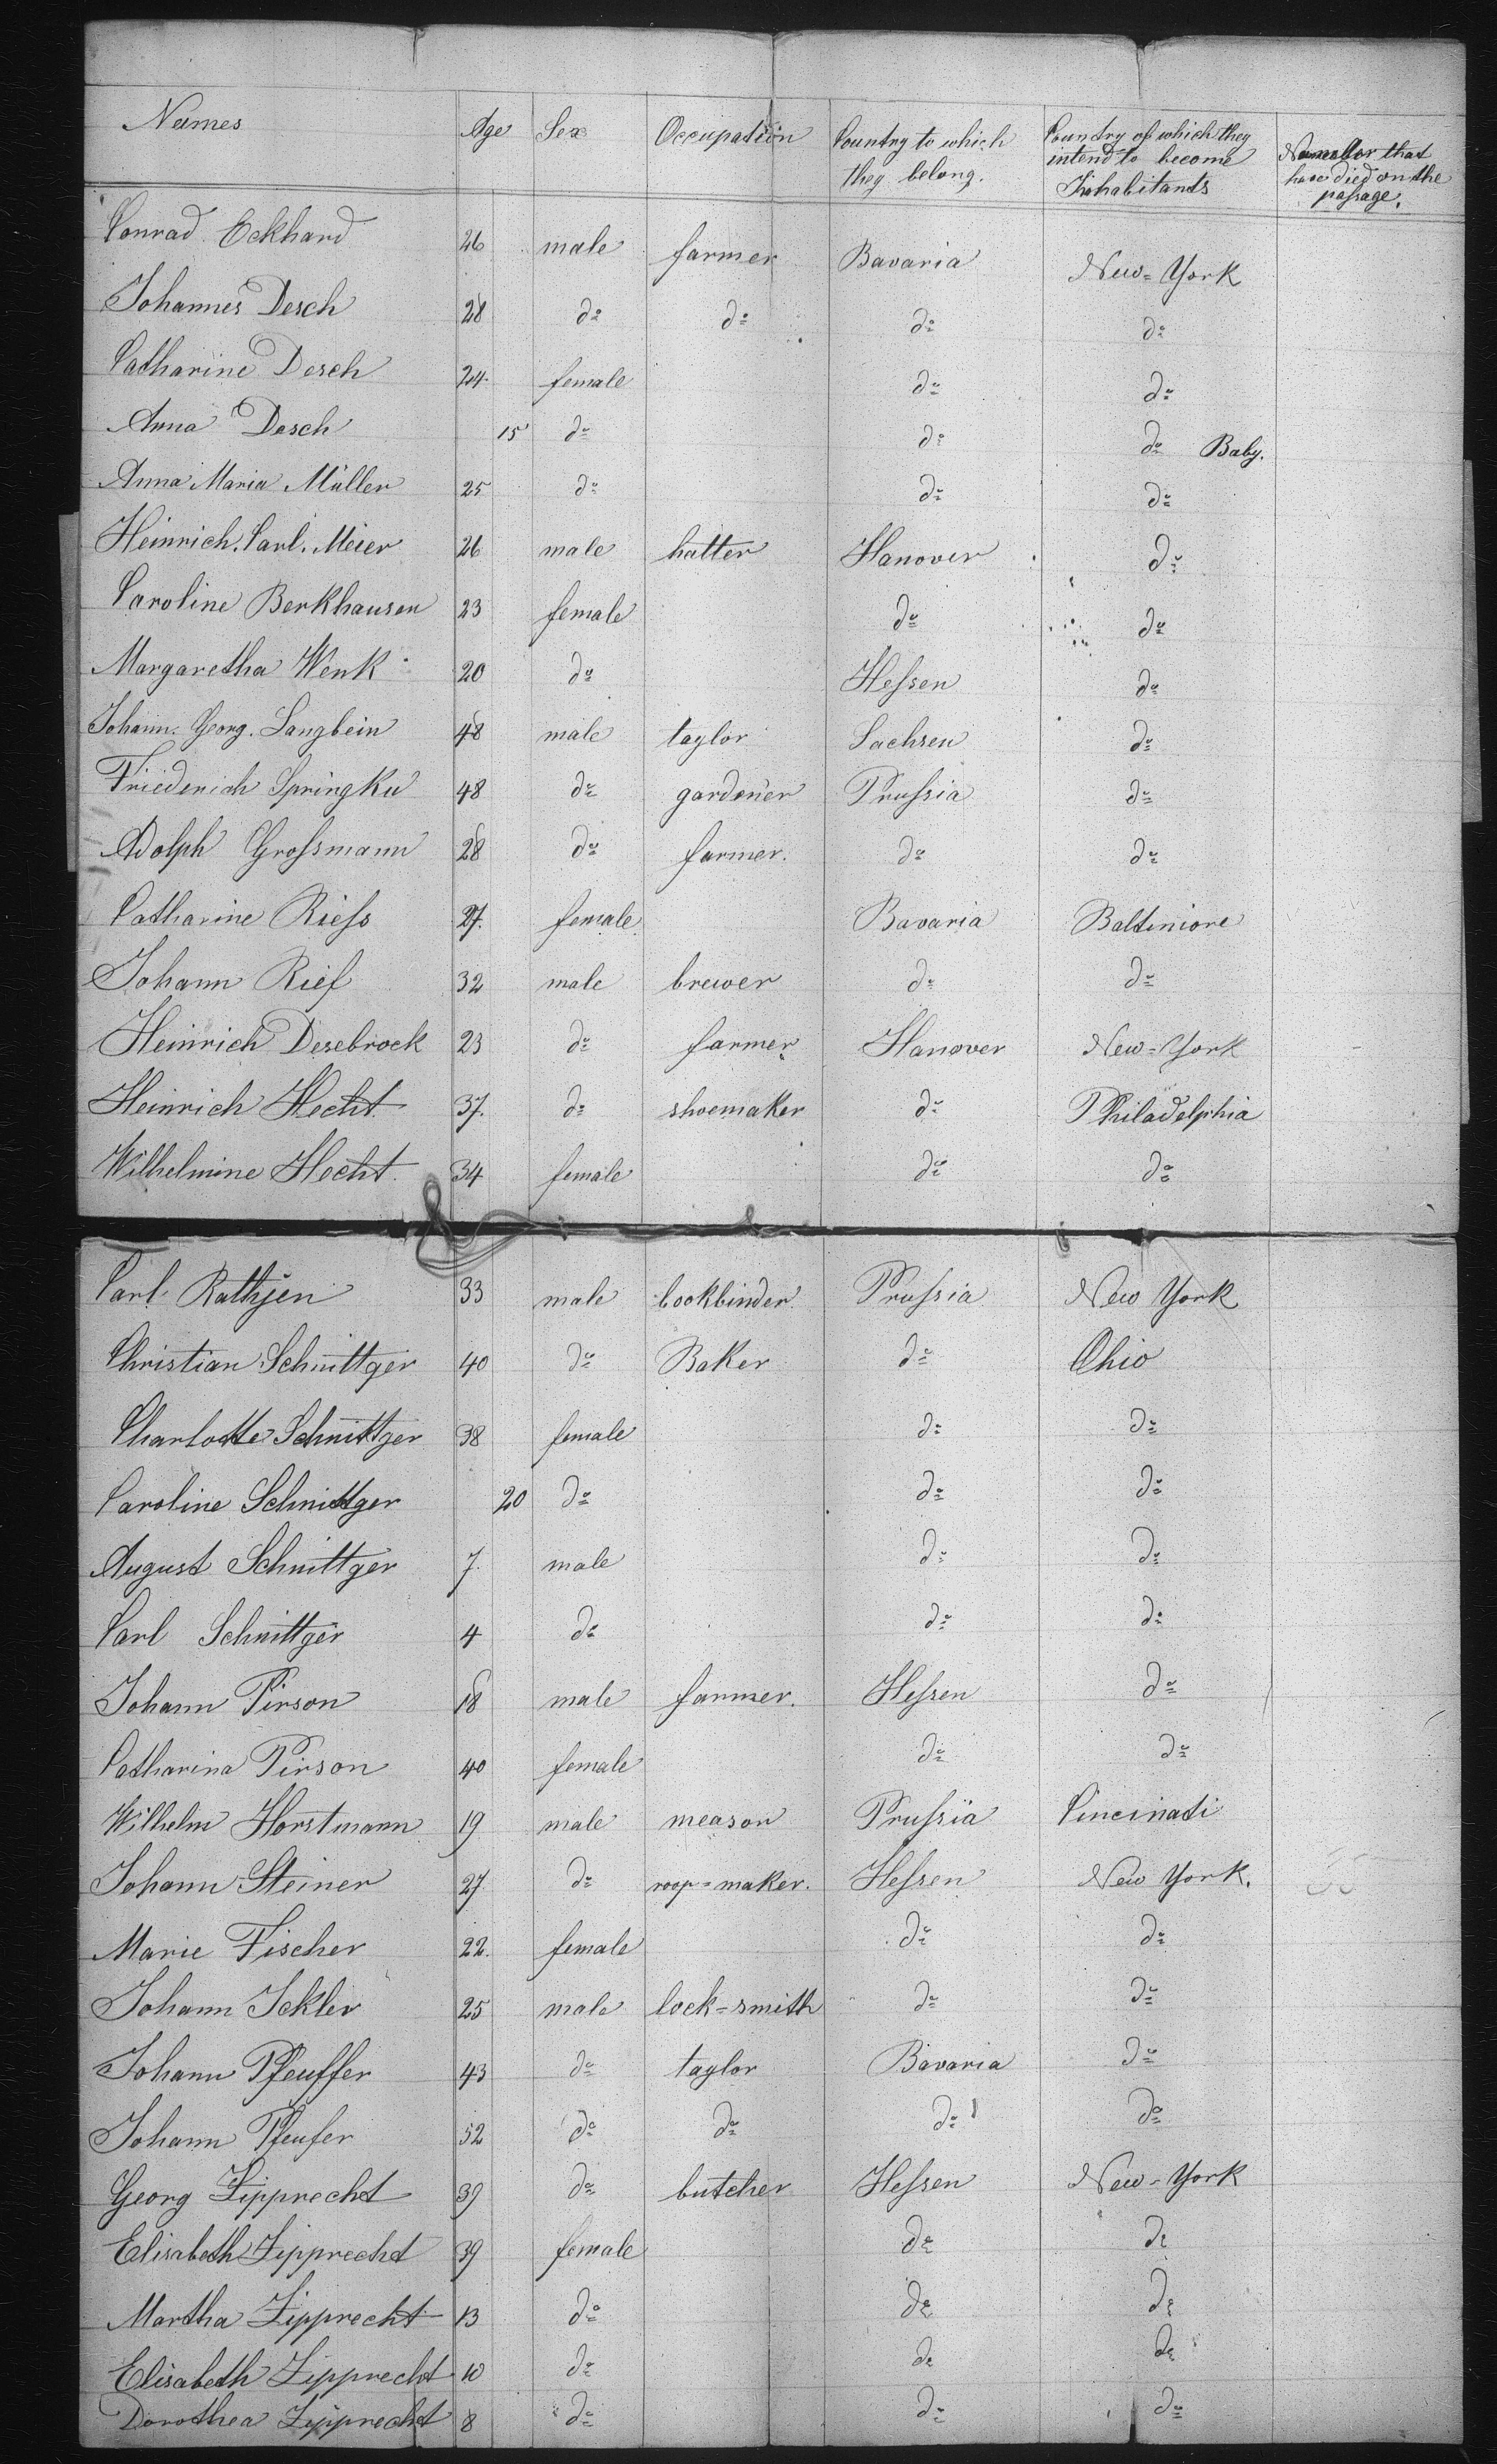 Names Age Sex Occupation Country to which they belong. Country of which they intend to become Inhabitants Number that have died on the passage.
Conrad Eckhard 26 male farmer Bavaria New-York
Johannes Desch 28 do do do do
Catharine Desch 24 female do do
Anna Desch 15 do do do Baby.
Anna Maria Müller 25 do do do
Heinrich Carl Meier 26 male hatter Hanover do
Caroline Berkhausen 23 female do do
Margaretha Wenk 20 do Hessen do
Johann Georg Langbein 48 male taylor Sachsen do
Friederich Springku 48 do gardener Prussia do
Adolph Grossmann 28 do farmer. do do
Catharine Riess 27. female Bavaria Baltimore
Johann Rief 32 male brewer do do
Heinrich Desebrock 23 do farmer Hanover New-York
Heinrich Hecht 37. do shoemaker do Philadelphia
Wilhelmine Hecht 34 female do do
Carl Rathjen 33 male bookbinder Prussia New York
Christian Schnittger 40 do Baker do Ohio
Charlotte Schnittger 38 female do do
Caroline Schnittger 20 do do do
August Schnittger 7. male do do
Carl Schnittger 4 do do do
Johann Pirson 18 male farmer. Hessen do
Catharina Pirson 40 female do do
Wilhelm Horstmann 19 male meason Prussia Cincinati
Johann Steiner 27 do roop=maker. Hessen New York.
Marie Fischer 22. female do do
Johann Ickler 25 male lock=smith do do
Johann Pfeuffer 43 do taylor Bavaria do
Johann Pfeufer 52 do do do do
Georg Zipprecht 39 do butcher Hessen New-York
Elisabeth Zipprecht 39 female do do
Martha Zipprecht 13 do do do
Elisabeth Zipprecht 10 do do do
Dorothea Zipprecht 8 do do do